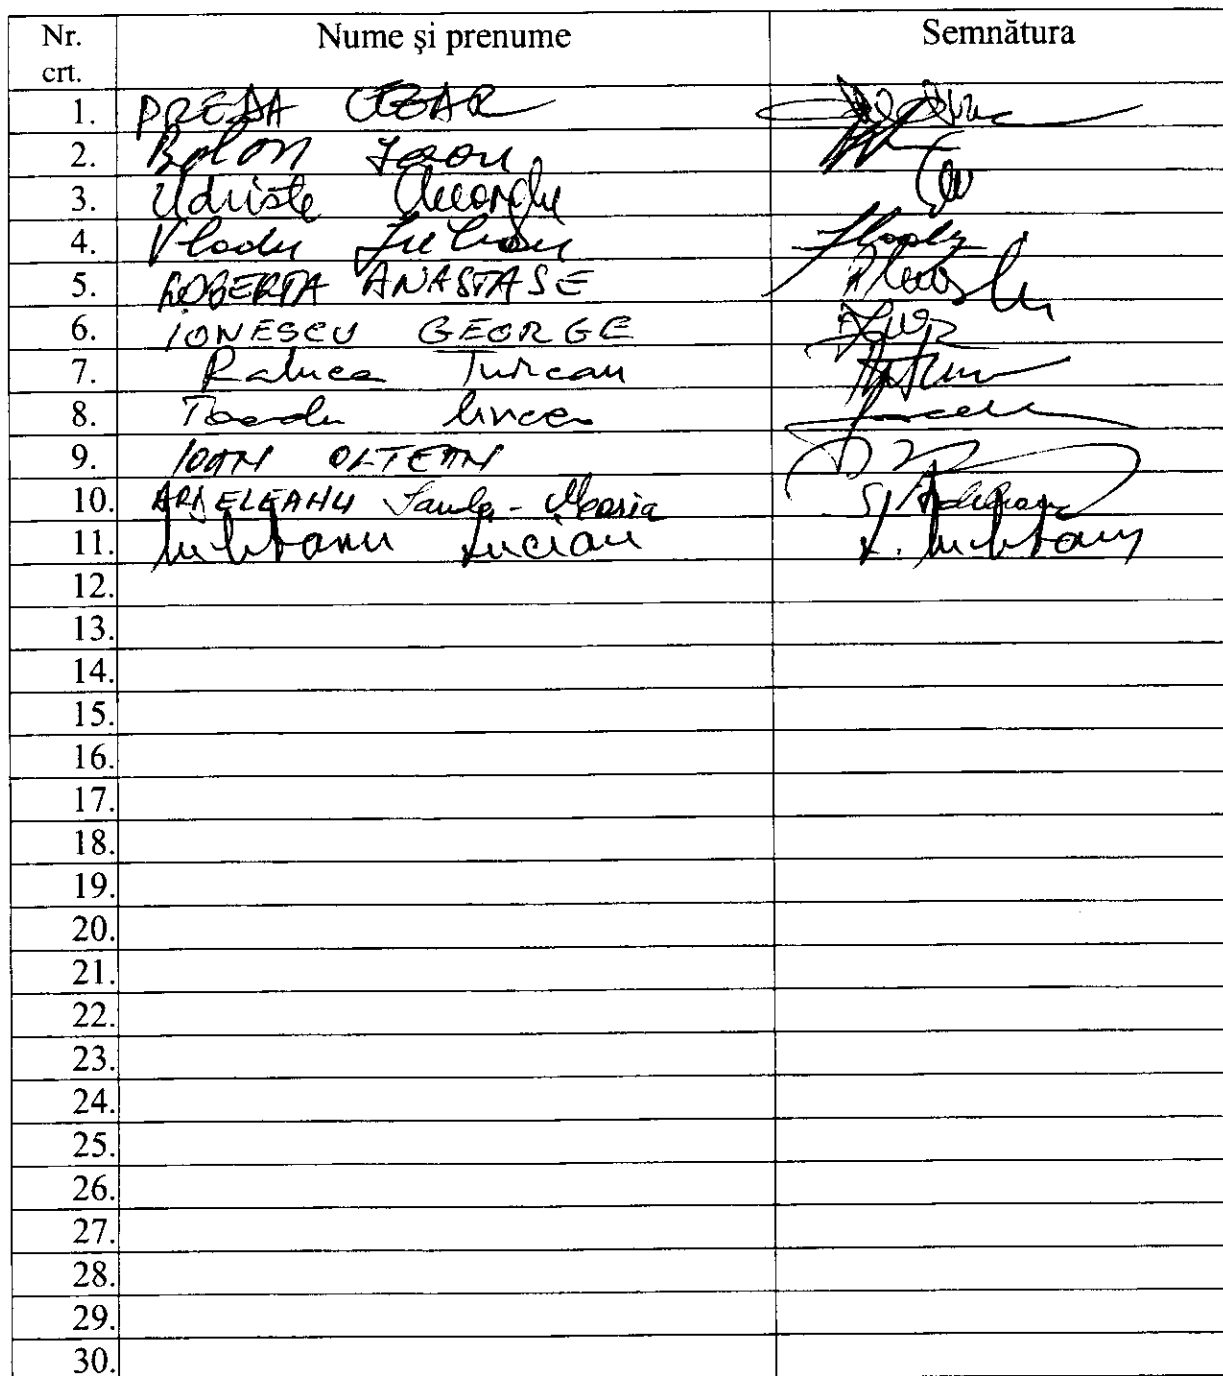 Nr. crt. Nume și prenume Semnătura
1. PREDA CEZAR
2. Bolon Ioan
3. Udriste Gheorghe
4. Vladu Iulian
5. ROBERTA ANASTASE
6. IONESCU GEORGE
7. Raluca Turcan
8. Toader Mircea
9. IOAN OLTEAN
10. ARDELEANU Sanda-Maria
11. Militaru Lucian L. Militaru
12.
13.
14.
15.
16.
17.
18.
19.
20.
21.
22.
23.
24.
25.
26.
27.
28.
29.
30.